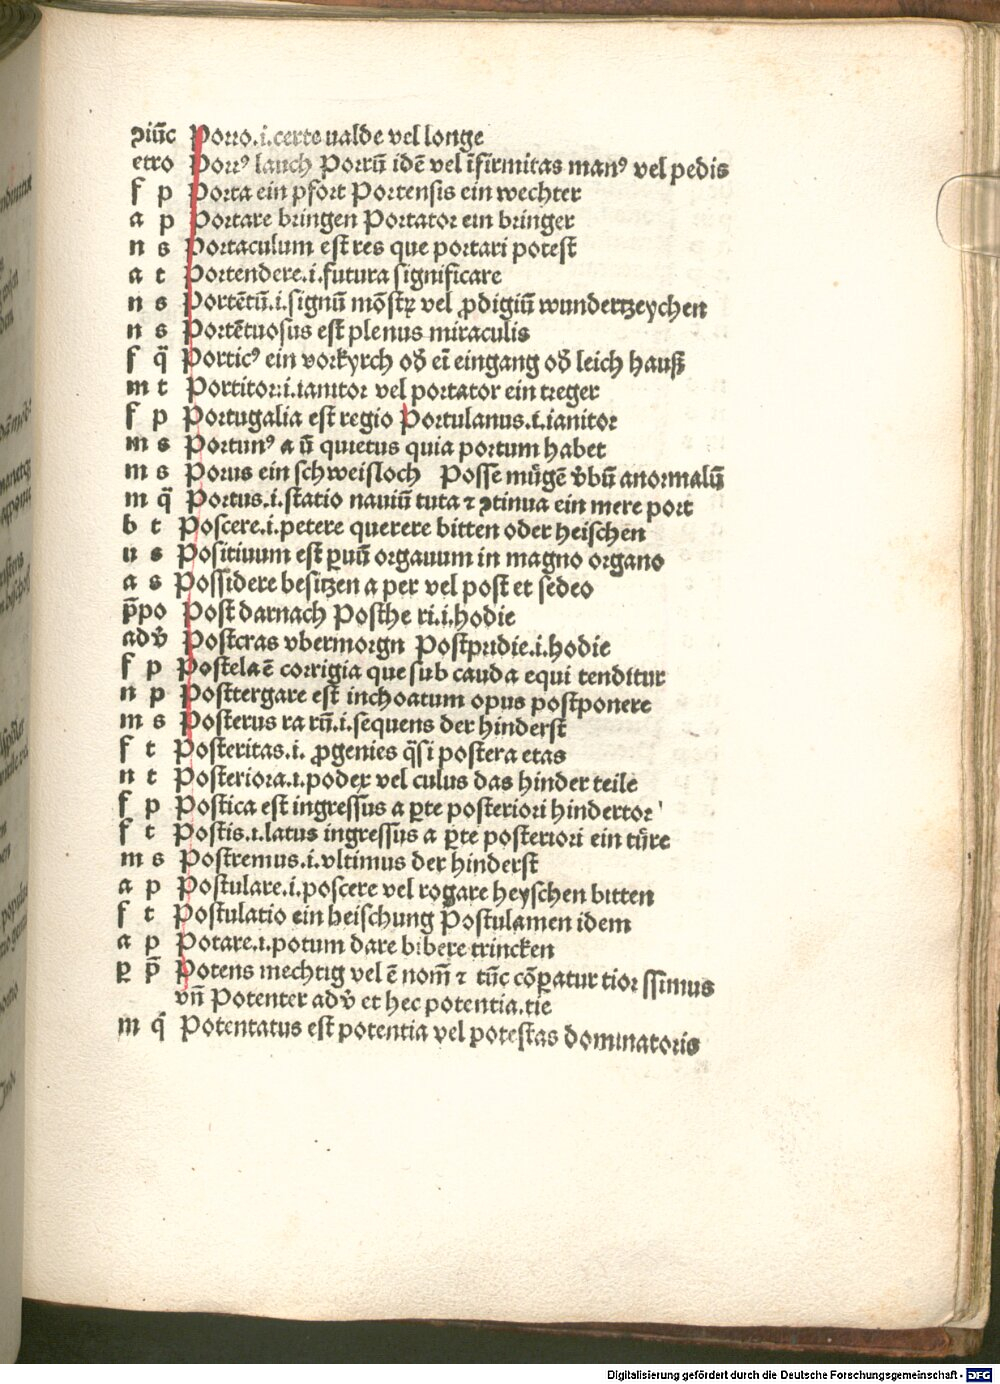 ꝯiūc Porro.i.certe ualde vel longe
etro Porrꝰ lauch Porrū idē vel īfirmitas manꝰ vel pedis
f p Porta ein pfort Portensis ein wechter
a p Portare bringen Portator ein bringer
n s Portaculum est res que portari potest
a t Portendere.i.futura significare
n s Portētū.i.signū mōstꝝ vel ꝓdigiū wundertzeychen
n s Portētuosus est plenus miraculis
f q̄ Porticꝰ ein vorkyrch od̄ eī eingang od̄ leich hauß
m t Portitor.i.ianitor vel portator ein treger
f p Portugalia est regio Portulanus.i.ianitor
m s Portunꝰ a ū quietus quia portum habet
m s Porus ein schweisloch Posse mu̇gē v̄bū anormalū
m q̄ Portus.i.statio nauiū tuta ⁊ ꝯtinua ein mere port
b t Poscere.i.petere querere bitten oder heischen
n s Positiuum est ꝑuū organum in magno organo
a s Possidere besitzen a per vel post et sedeo
p̄po Post darnach Posthe ri.i.hodie
adv̄ Postcras vbermorgn Postpridie.i.hodie
f p Postela ē corrigia que sub cauda equi tenditur
n p Posttergare est inchoatum opus postponere
m s Posterus ra rū.i.sequens der hinderst
f t Posteritas.i. ꝓgenies q̄si postera etas
n t Posteriora.i.podex vel culus das hinder teile
f p Postica est ingressus a ꝑte posteriori hindertor
f t Postis.i.latus ingressus a ꝑte posteriori ein tu̇re
m s Postremus.i.vltimus der hinderst
a p Postulare.i.poscere vel rogare heyschen bitten
f t Postulatio ein heischung Postulamen idem
a p Potare.i.potum dare bibere trincken
ꝑ p̄ Potens mechtig vel ē nom̄ ⁊ tūc cōꝑatur tior ssimus
vn̄ Potenter adv̄ et hec potentia.tie
m q̄ Potentatus est potentia vel potestas dominatoris
Digitalisierung gefördert durch die Deutsche Forschungsgemeinschaft - DFG